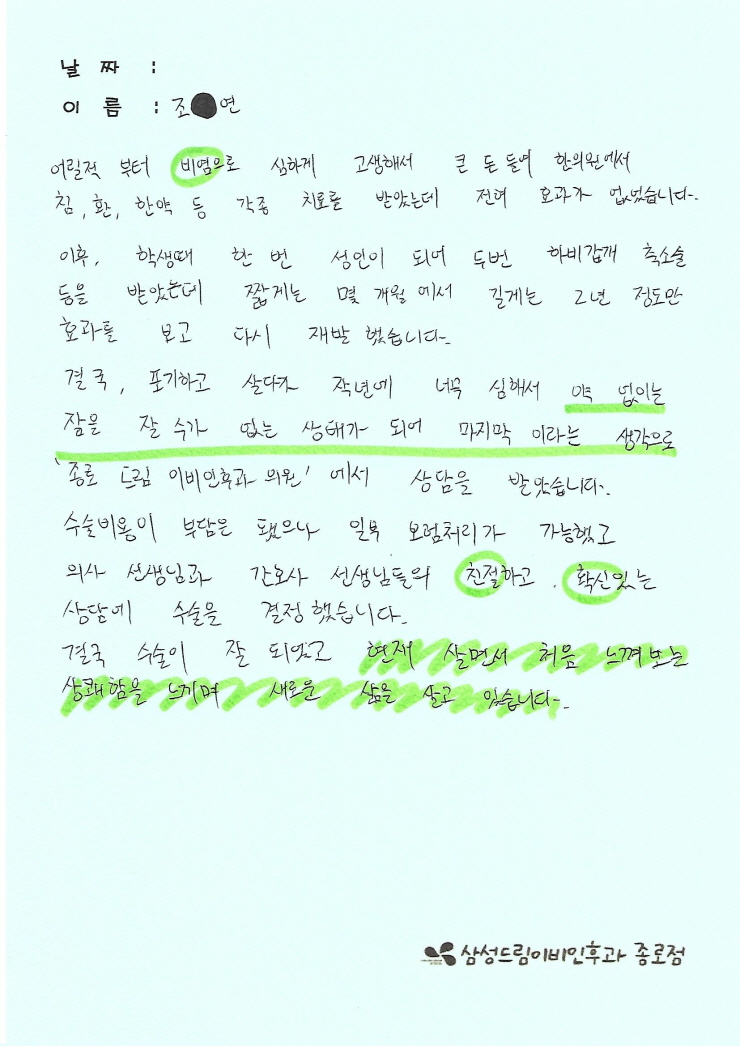 날 짜 :
이 름 : 조 연
어릴적 부터 비염으로 심하게 고생해서 큰 돈 들여 한의원에서
침, 환, 한약 등 각종 치료를 받았는데 전혀 효과가 없었습니다.
이후, 학생때 한 번 성인이 되어 두번 하비갑개 축소술
등을 받았는데 짧게는 몇 개월 에서 길게는 2년 정도만
효과를 보고 다시 재발 했습니다.
결국, 포기하고 살다가 작년에 너무 심해서 약 없이는
잠을 잘 수가 없는 상태가 되어 마지막 이라는 생각으로
'종로 드림 이비인후과 의원' 에서 상담을 받았습니다.
수술비용이 부담은 됐으나 일부 보험처리가 가능했고
의사 선생님과 간호사 선생님들의 친절하고, 확신있는
상담에 수술을 결정 했습니다.
결국 수술이 잘 되었고 현재 살면서 처음 느껴보는
상쾌함을 느끼며 새로운 삶을 살고 있습니다.
삼성드림이비인후과 종로점